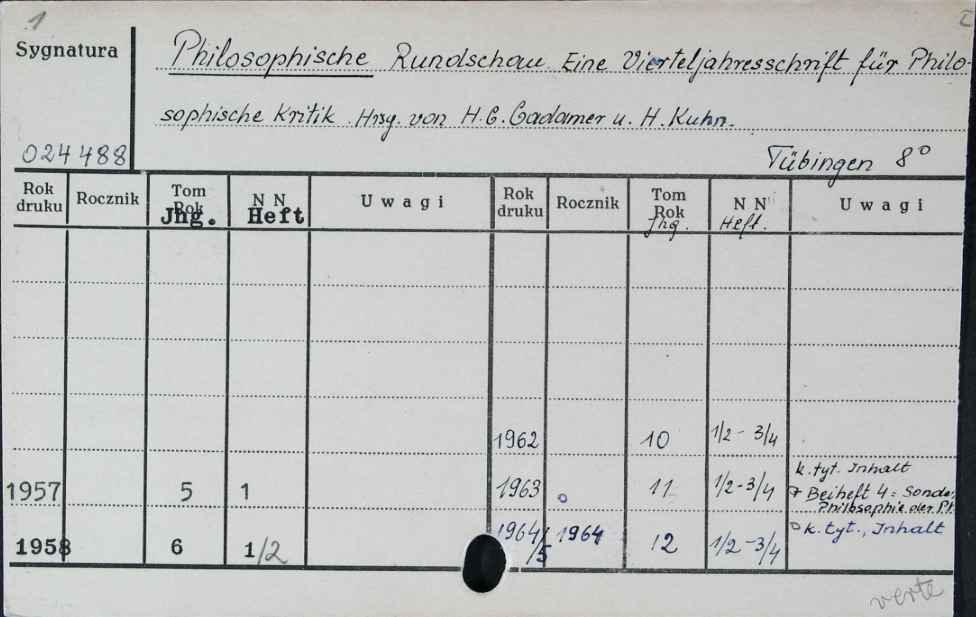 1
Sygnatura
Philosophische Rundschau. Eine Vierteljahresschrift für Philo-
sophische Kritik. Hrsg. von H.G. Gadamer u. H. Kuhn.
024488
Tübingen 8°
Rok druku Rocznik Tom Rok Jhg. N N Heft Uwagi Rok druku Rocznik Tom Rok Jhg. N N Heft. Uwagi
1962 10 1/2 - 3/4
k. tyt. Inhalt
1957 5 1 1963 ° 11 1/2-3/4 + Beiheft 4 = Sonder
Philosophie der
1958 6 1/2 1964/5 1964 12 1/2-3/4 ° k. tyt., Inhalt
verte